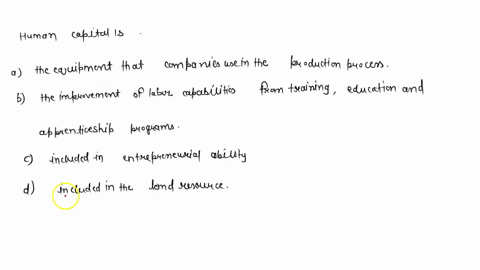 Human capital is .
a) the equipment that companies use in the production process.
b) the improvement of labor capabilities from training, education and
apprenticeship programs.
c) included in entrepreneurial ability
d) included in the land resource.